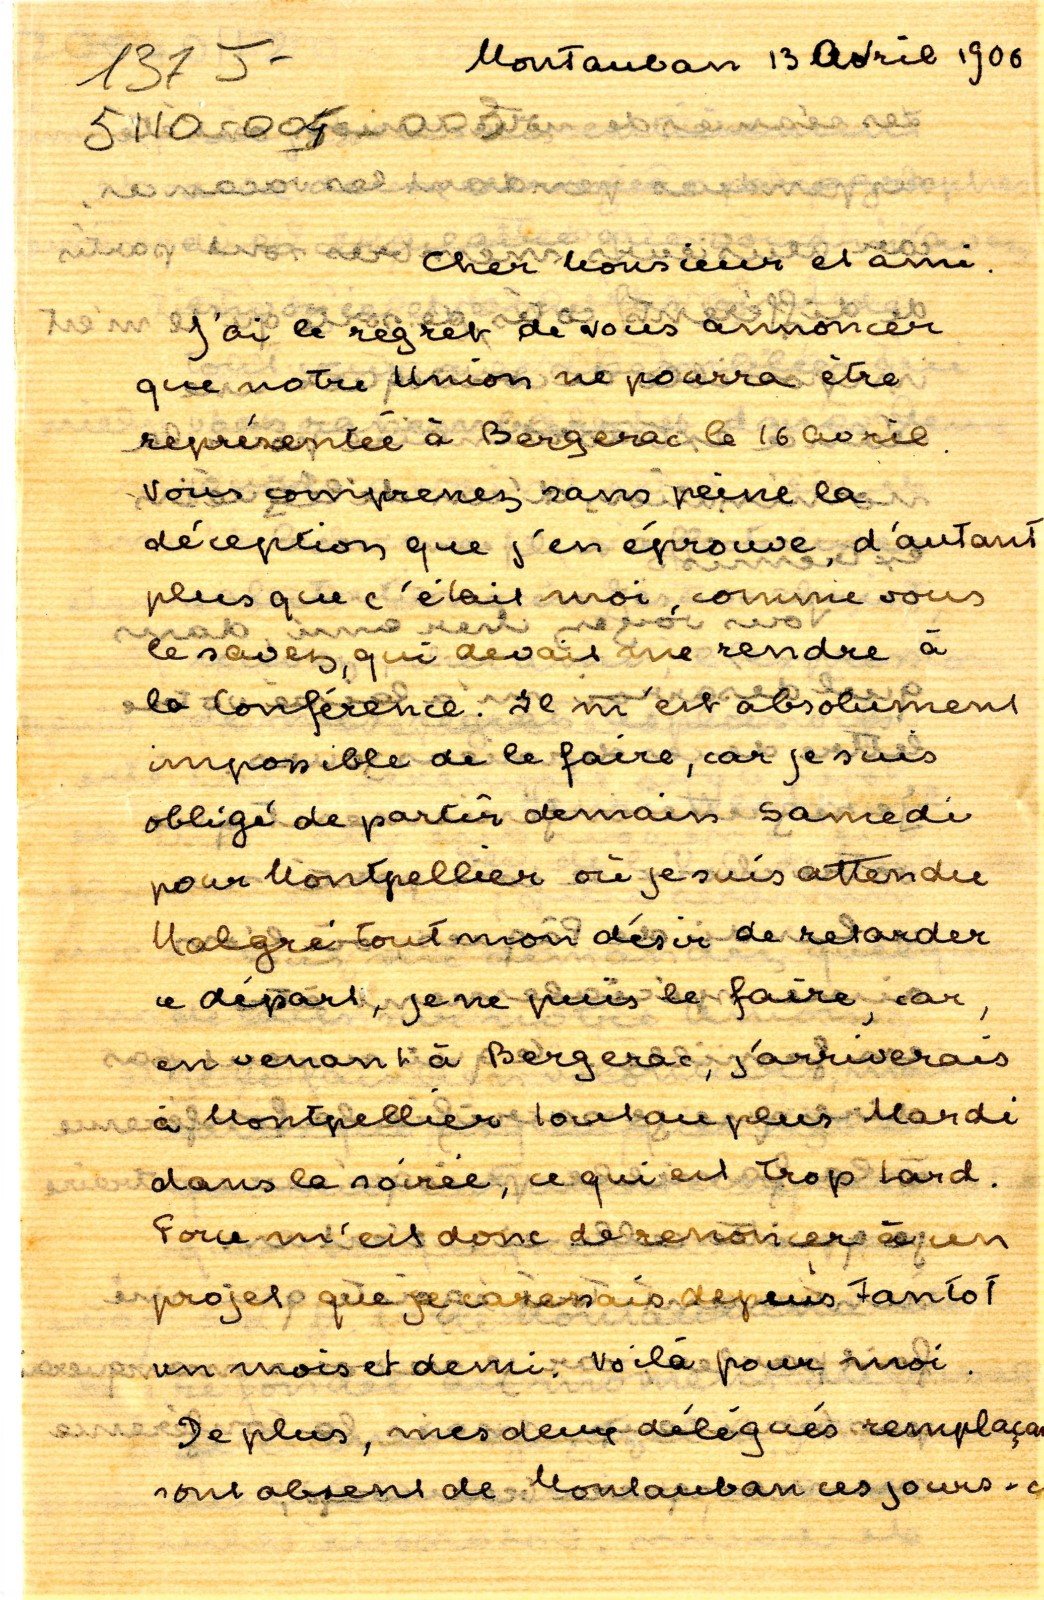 137 5-
5110-005
Montauban 13 Avril 1906
Cher Monsieur et ami.
J'ai le regret de vous annoncer
que notre Union ne pourra être
représentée à Bergerac le 16 avril.
Vous comprenez sans peine la
déception que j'en éprouve, d'autant
plus que c'était moi, comme vous
le savez, qui devait me rendre à
la Conférence. Il m'est absolument
impossible de le faire, car je suis
obligé de partir demain Samedi
pour Montpellier où je suis attendu
Malgré tout mon désir de retarder
ce départ, je ne puis le faire, car,
en venant à Bergerac, j'arriverais
à Montpellier tout au plus Mardi
dans la soirée, ce qui est trop tard.
Force m'est donc de renoncer à un
projet que je caressais depuis tantot
un mois et demi. Voilà pour moi.
De plus, mes deux délégués remplaçan
sont absent de Montauban ces jours-c